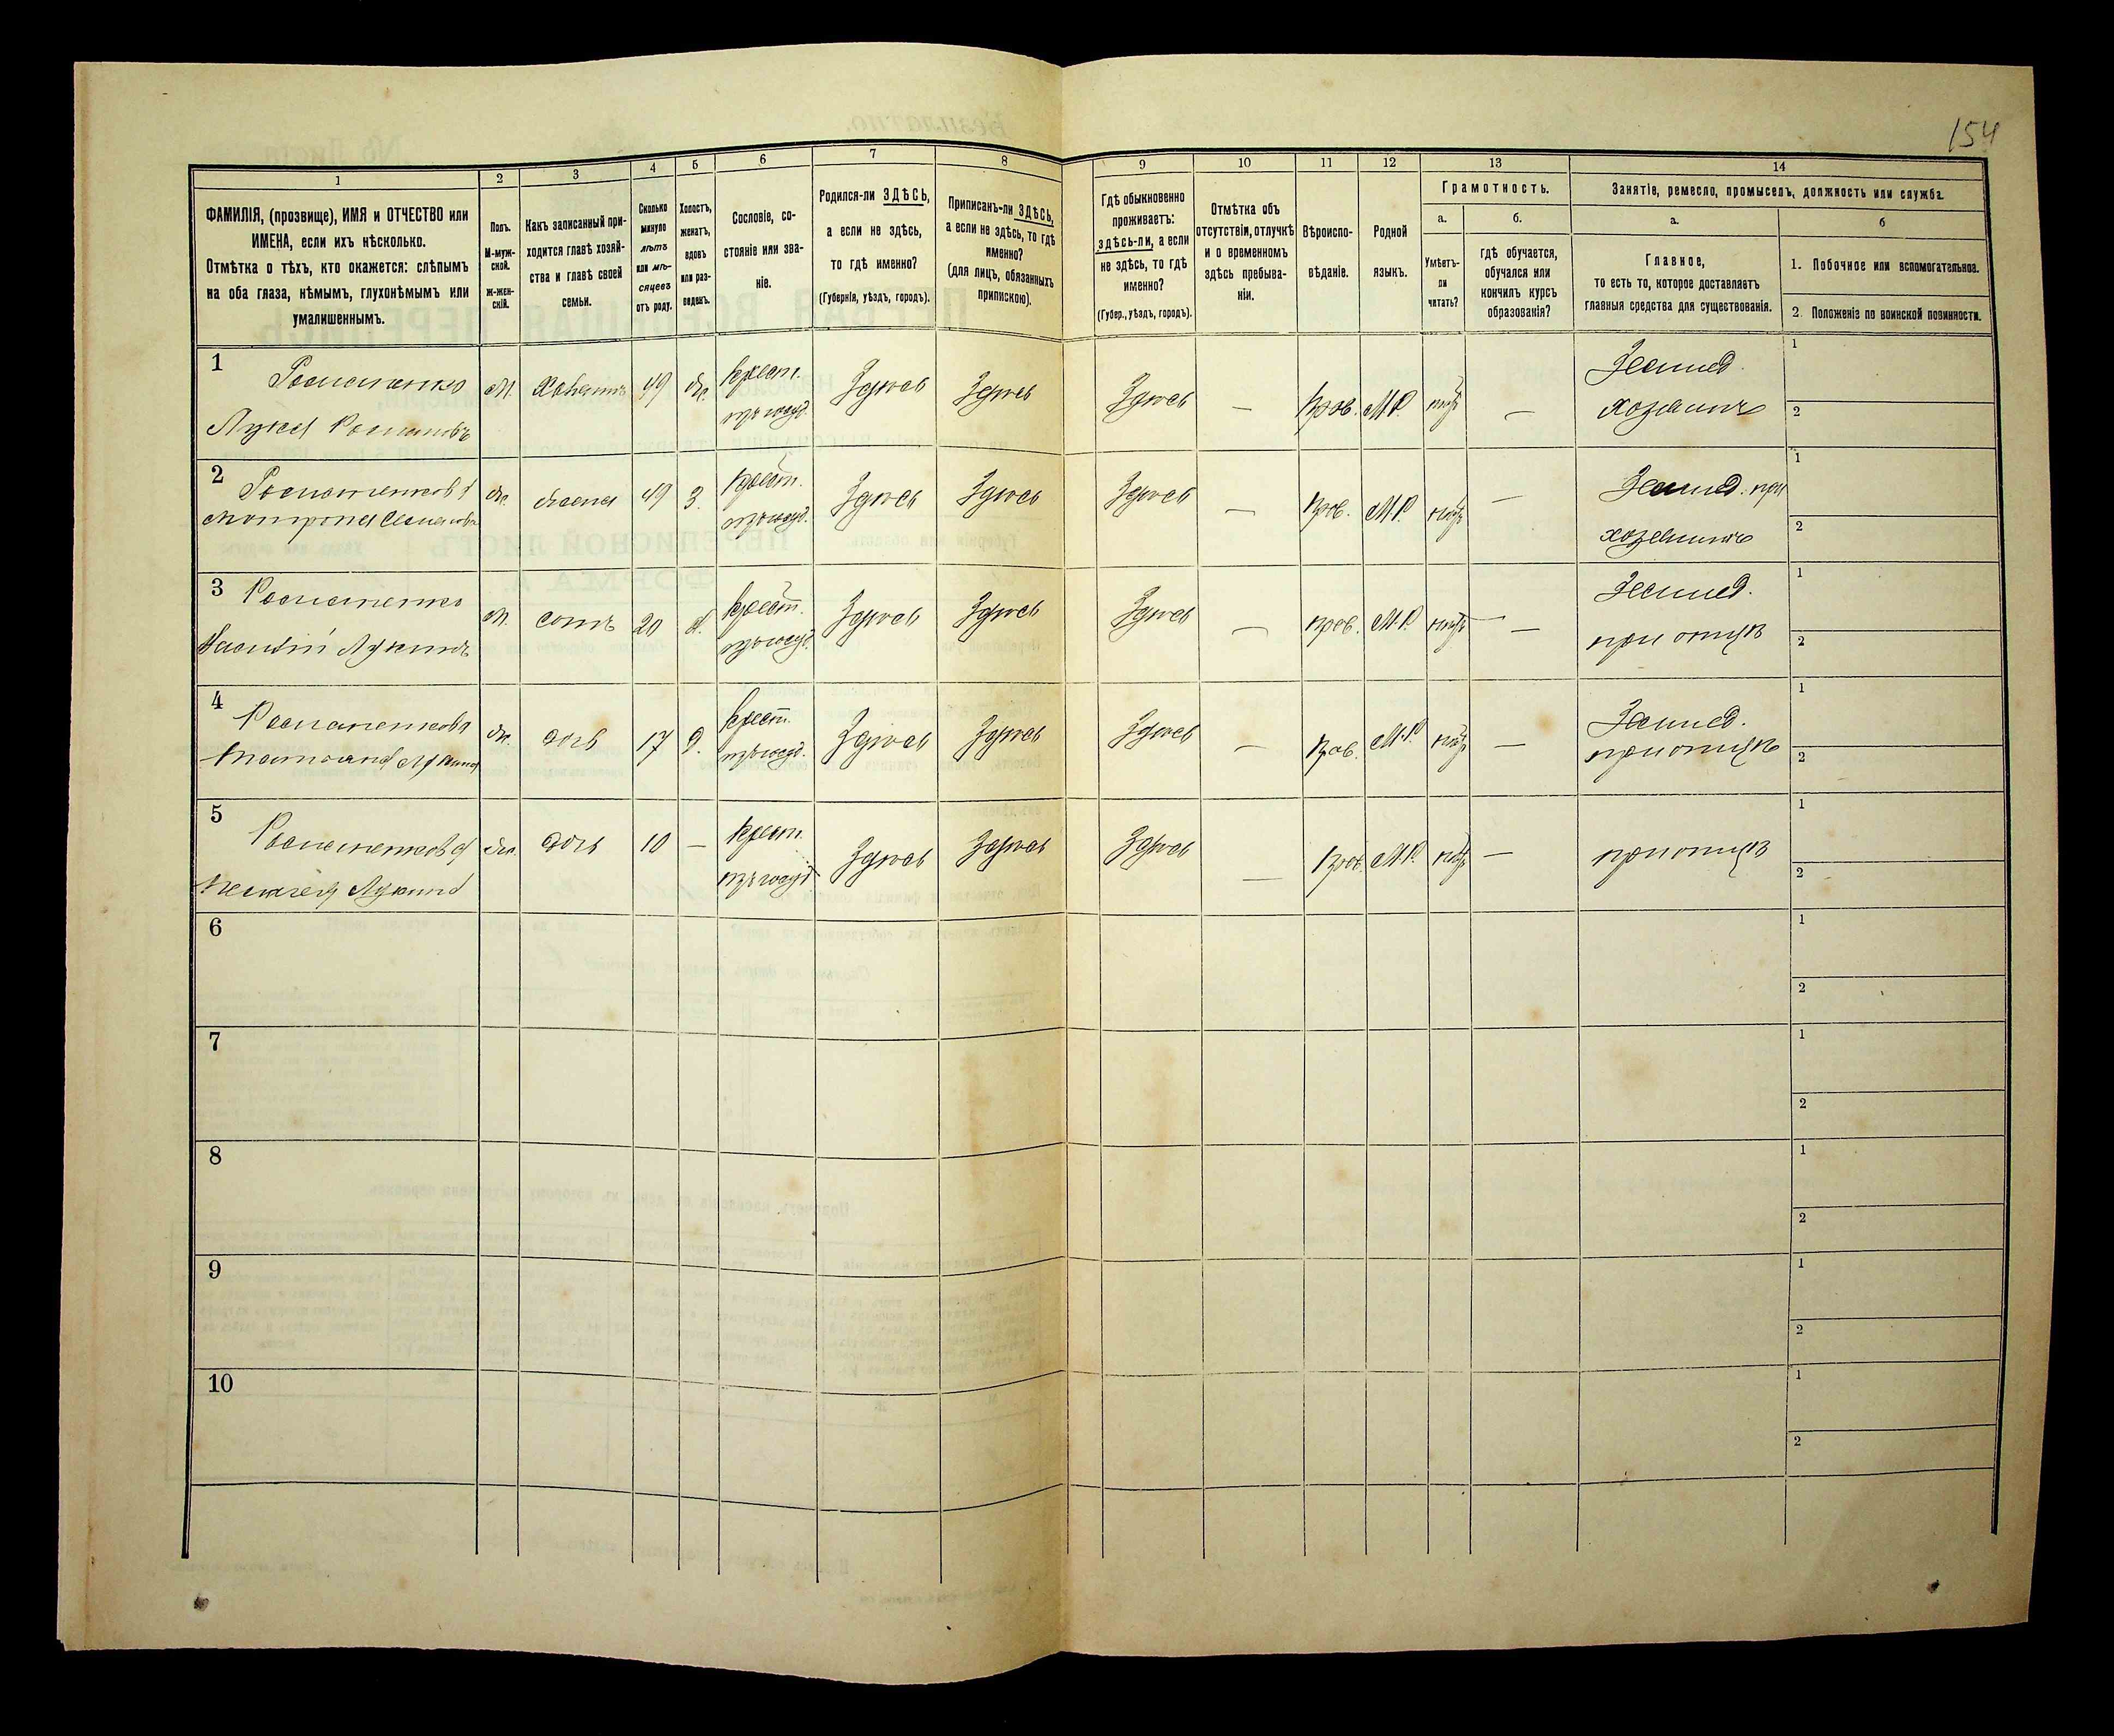 154
1
2
3
4
5
6
7
8
9
10
11
12
13
14
ФАМИЛІЯ, (прозвище), ИМЯ и ОТЧЕСТВО или
ИМЕНА, если ихъ нѣсколько.
Отмѣтка о тѣхъ, кто окажется: слѣпымъ
на оба глаза, нѣмымъ, глухонѣмымъ или
умалишеннымъ.
Полъ.
М-муж-
ской.
ж-жен-
скій.
Какъ записанный при-
ходится главѣ хозяй-
ства и главѣ своей
семьи.
Сколько
минуло
лѣтъ
или мѣ-
сяцевъ
отъ роду.
Холостъ,
женатъ,
вдовъ
или раз-
веденъ.
Сословіе, со-
стояніе или зва-
ніе.
Родился-ли ЗДѢСЬ,
а если не здѣсь,
то гдѣ именно?
(Губернія, уѣздъ, городъ).
Приписанъ-ли ЗДѢСЬ,
а если не здѣсь, то гдѣ
именно?
(для лицъ, обязанныхъ
припискою).
Гдѣ обыкновенно
проживаетъ:
здѣсь-ли, а если
не здѣсь, то гдѣ
именно?
(Губер., уѣздъ, городъ).
Отмѣтка объ
отсутствіи, отлучкѣ
и о временномъ
здѣсь пребыва-
ніи.
Вѣроиспо-
вѣданіе.
Родной
языкъ.
Грамотность.
а.
Умѣетъ-
ли
читать?
б.
гдѣ обучается,
обучался или
кончилъ курсъ
образованія?
Занятіе, ремесло, промыселъ, должность или служба.
а.
Главное,
то есть то, которое доставляетъ
главныя средства для существованія.
б
1. Побочное или вспомогательное.
2. Положеніе по воинской повинности.
1 Романенко
Лука Романовъ
м. Хозяинъ 49 ж. крест.
изъ госуд. Здѣсь Здѣсь Здѣсь — Прав. М.Р. нѣтъ — Землед.
хозяинъ
1
2
2 Романенкова
Матрона Семенова
ж. жена 49 З. крест.
изъ госуд. Здѣсь Здѣсь Здѣсь — Прав. М.Р. нѣтъ — Землед. при
хозяинѣ
1
2
3 Романенко
Василій Лукинъ
м. сынъ 20 х. крест.
изъ госуд. Здѣсь Здѣсь Здѣсь — прав. М.Р. нѣтъ — Землед.
при отцѣ
1
2
4 Романенкова
Лукина
ж. дочь 17 д. крест.
изъ госуд. Здѣсь Здѣсь Здѣсь — Прав. М.Р. нѣтъ — Землед.
при отцѣ
1
2
5 Романенкова
Лукина
ж. дочь 10 — крест.
изъ госуд. Здѣсь Здѣсь Здѣсь — Прав. М.Р. нѣтъ — при отцѣ
1
2
6
1
2
7
1
2
8
1
2
9
1
2
10
1
2